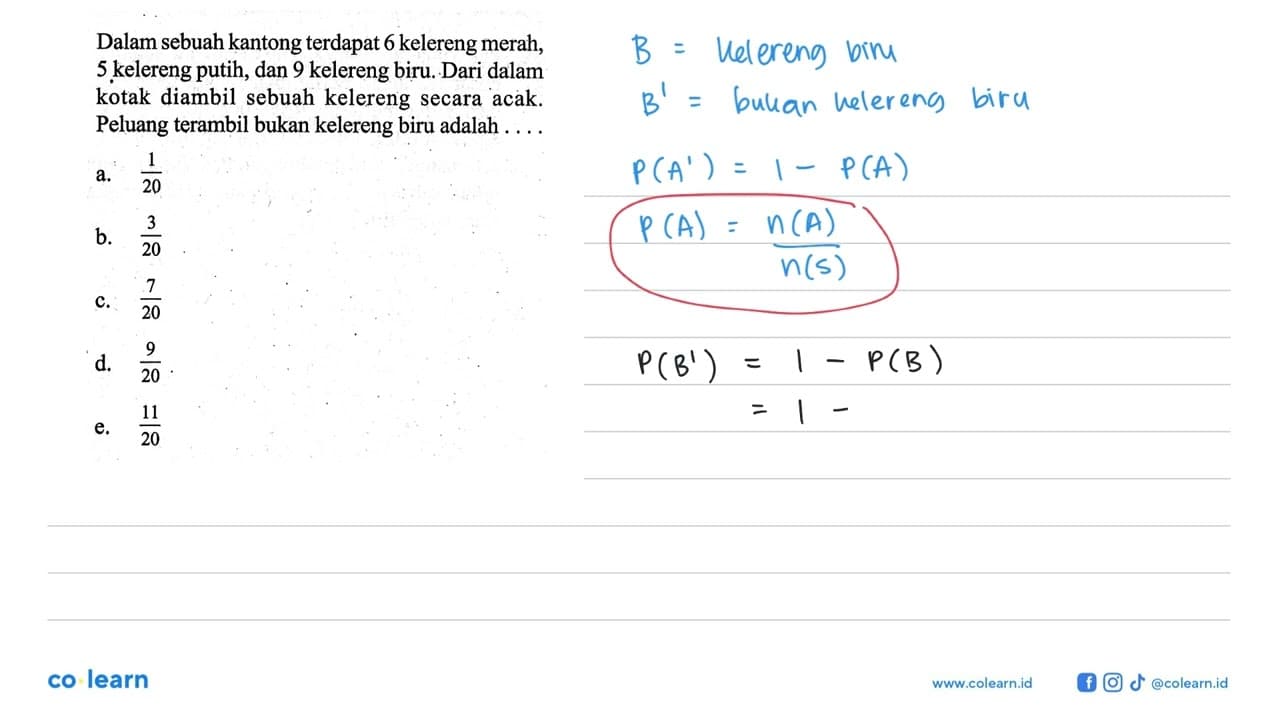 Dalam sebuah kantong terdapat 6 kelereng merah,
5 kelereng putih, dan 9 kelereng biru. Dari dalam
kotak diambil sebuah kelereng secara acak.
Peluang terambil bukan kelereng biru adalah . . . .
a. 1/20
b. 3/20
c. 7/20
d. 9/20
e. 11/20
B = kelereng biru
B' = bukan kelereng biru
P(A') = 1 - P(A)
P(A) = n(A)/n(S)
P(B') = 1 - P(B)
= 1 -
co learn
www.colearn.id
@colearn.id